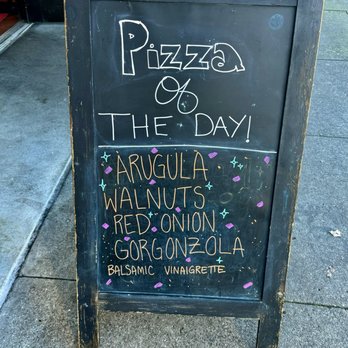 Pizza
of
THE DAY!
ARUGULA
WALNUTS
RED ONION
GORGONZOLA
BALSAMIC VINAIGRETTE